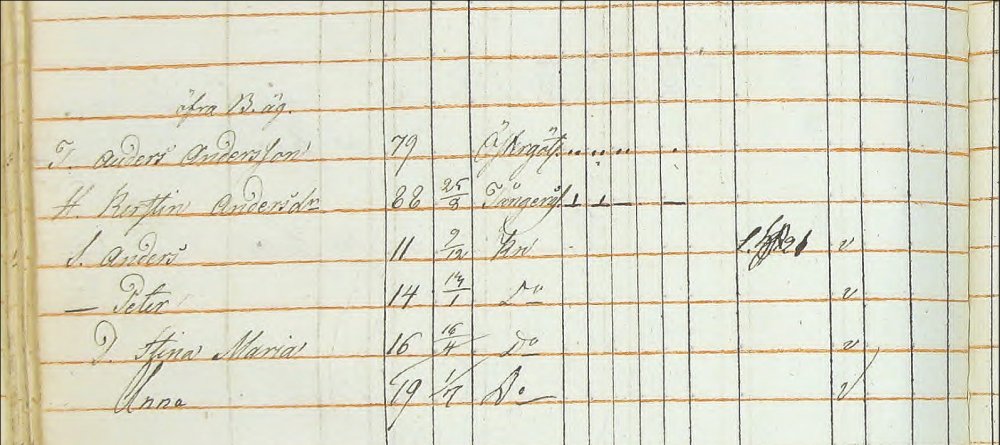 öfra B. äg.
T. Anders Andersson 79 Östergöth.
H. Kerstin Andersdr 88 25/8 Tångeråsa
S. Anders 11 9/12 Kn v
— Peter 14 /1 Do v
D. Stina Maria 16 16/4 Do v
Anna 19 1/7 Do v